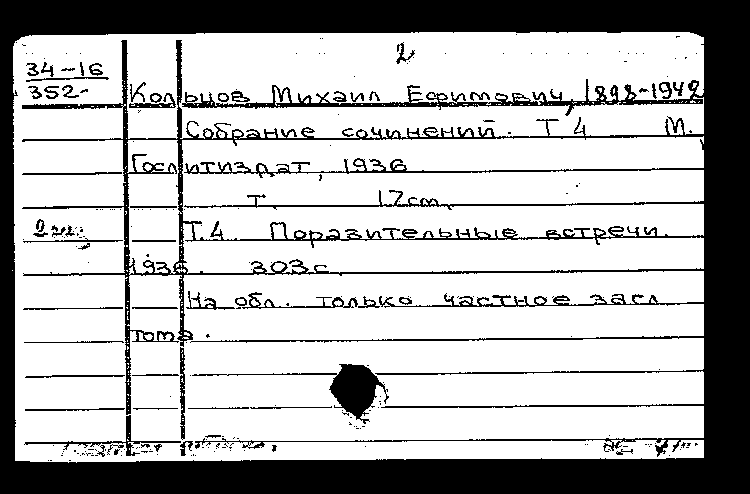 2
34-16
352-
Кольцов Михаил Ефимович, 1898-1942
Собрание сочинений. Т. 4 М.
Гослитиздат, 1936
т. 17cm.
Т.4. Поразительные встречи.
1936. 303с.
На обл. только частное загл
тома.